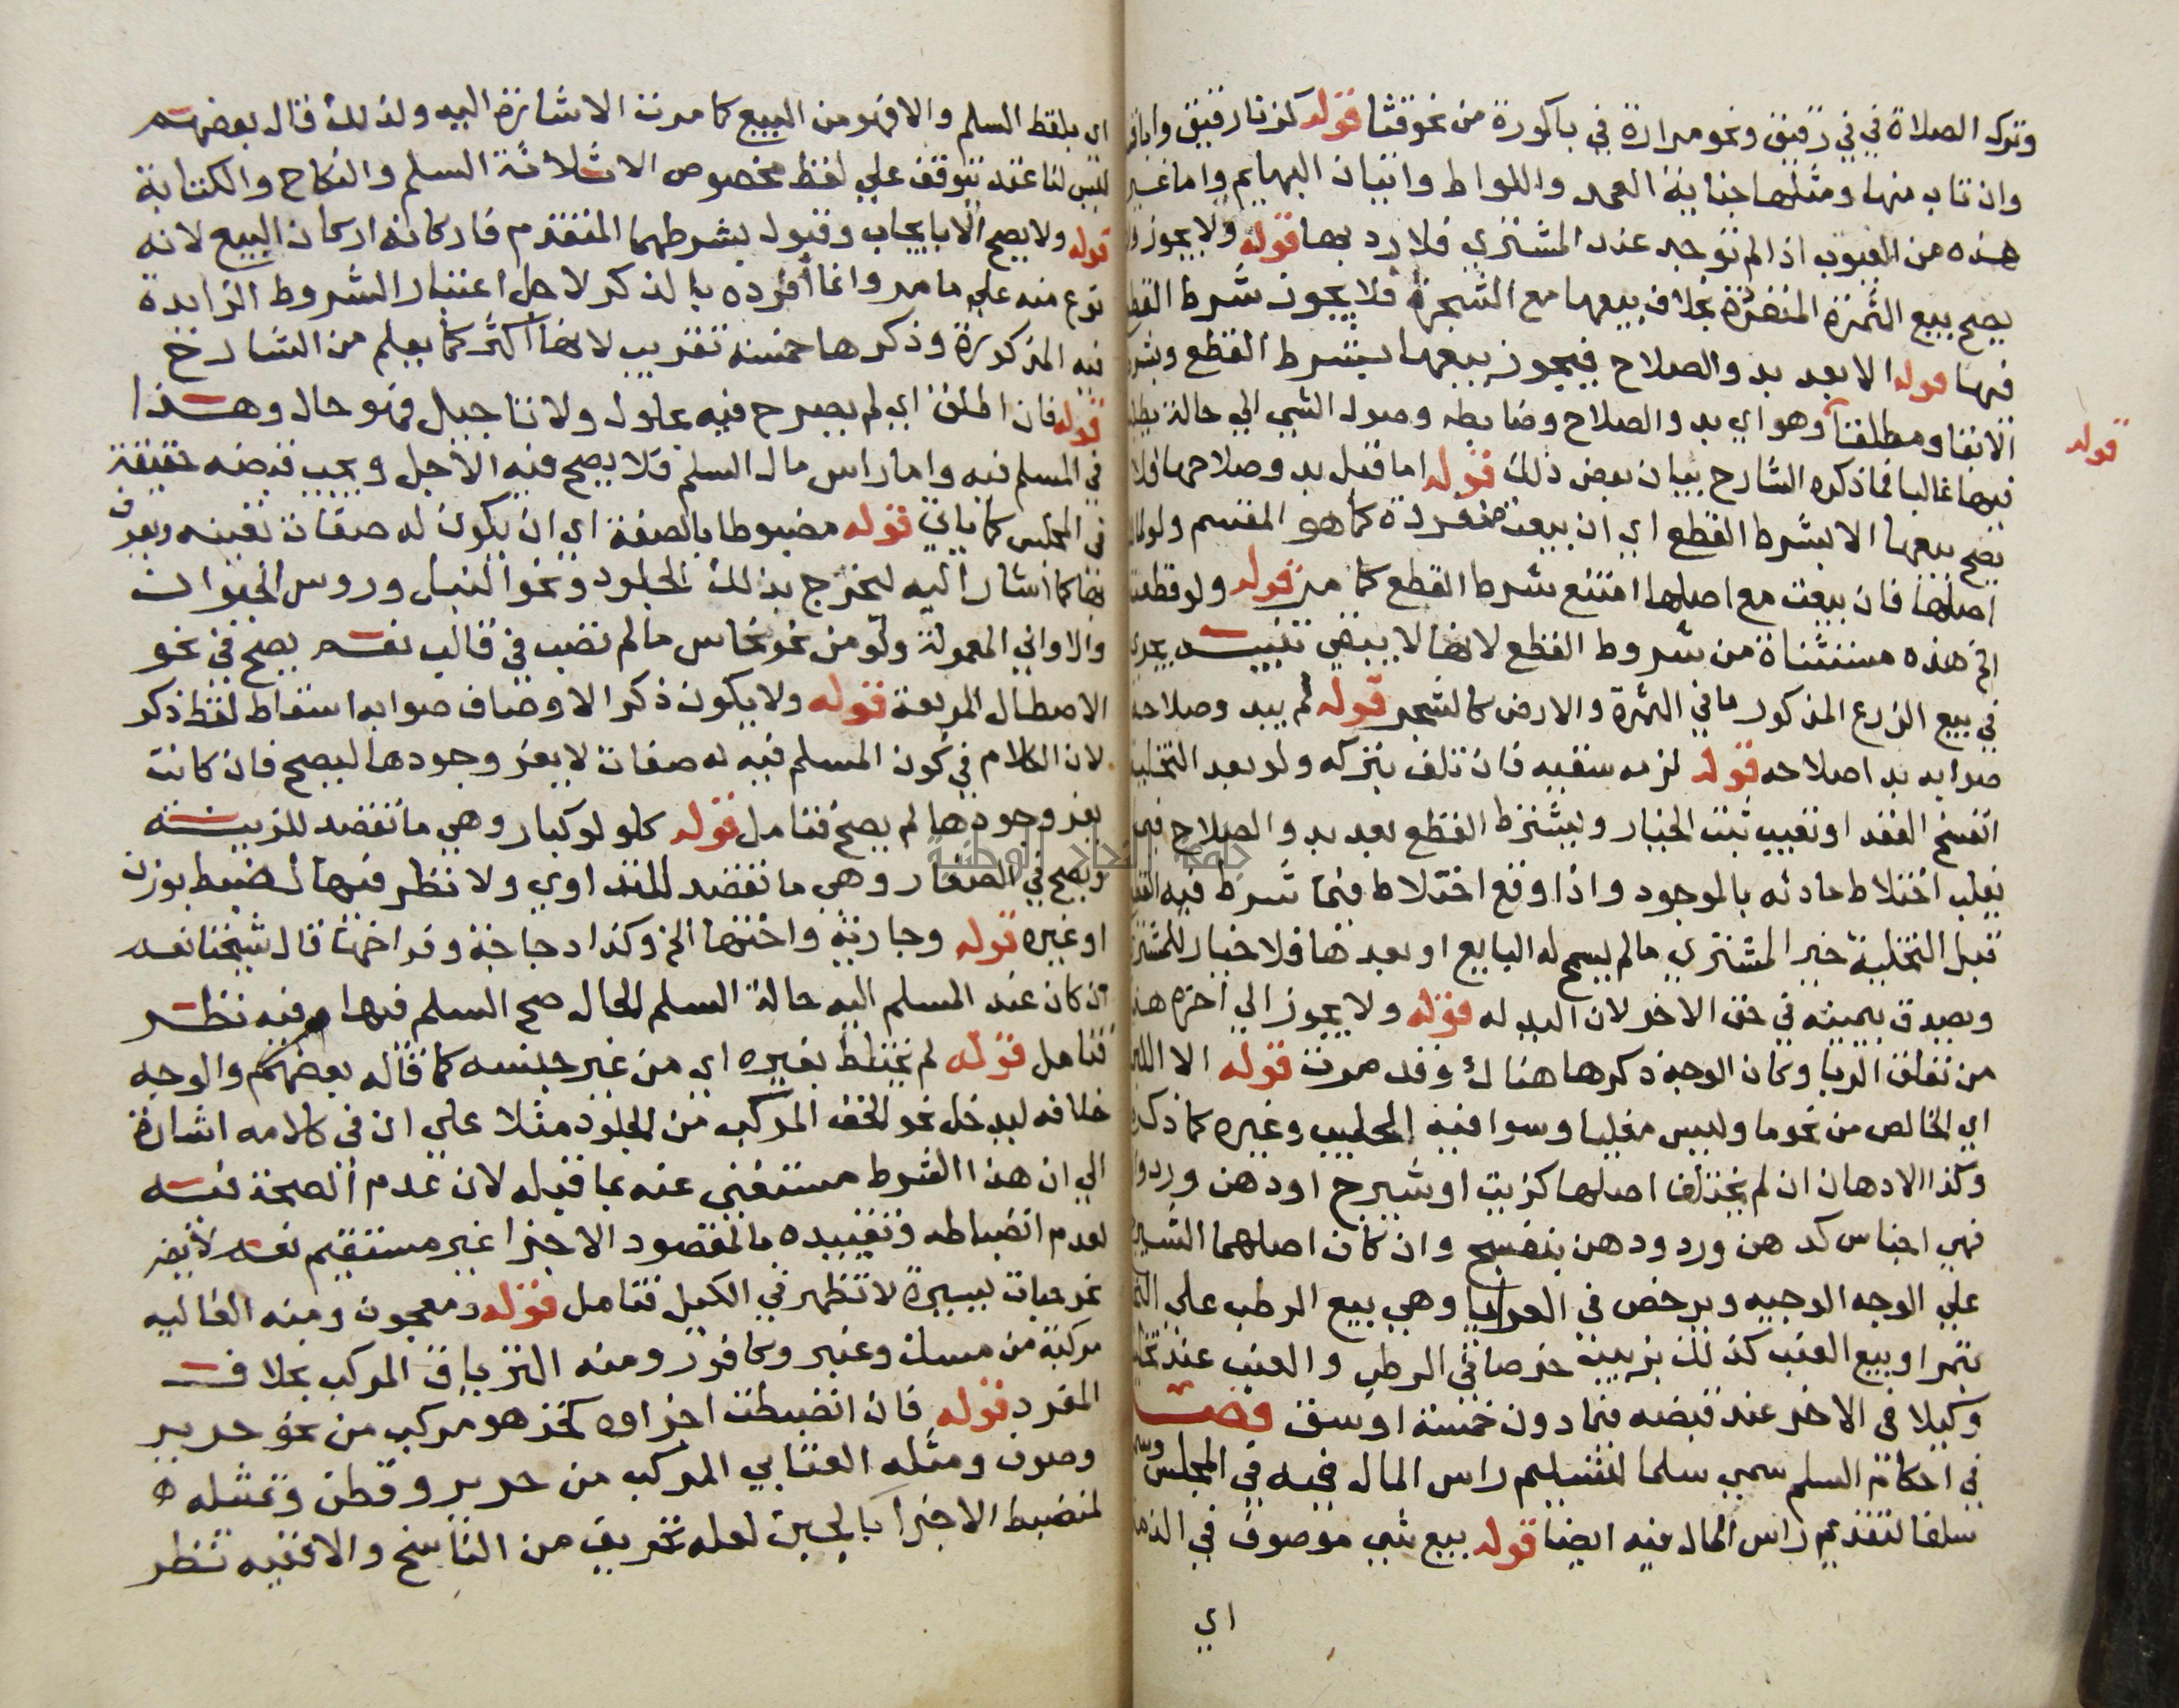 وترك الصلاة في رقيق ونحو مرارة في باكورة من نحو قثا قوله كزنا رقيق واباق
وان تاب منها ومثلها جناية العمد واللواط واتيان البهايم واما غير
هذه من العيوب اذا لم توجد عند المشتري فلا رد بها قوله ولا يجوز
يصح بيع الثمرة المنفردة بخلاف بيعها مع الشجرة فلا يجوز شرط القطع
فيها قوله الا بعد بدو الصلاح فيجوز بيعها بشرط القطع وبشرط
الابقا ومطلقا وهو اي بدو الصلاح وضابطه وصول الشي الي حالة يطلب
قوله
فيها غالبا فما ذكره الشارح بيان بعض ذلك قوله اما قبل بدو صلاحها فلا
يصح بيعها الا بشرط القطع اي ان بيعت منفردة كما هو المقسم ولو كان
اصلها فان بيعت مع اصلها امتنع شرط القطع كما مر قوله ولو قطعت
الخ هذه مستثناة من شروط القطع لانها لا يبقي تنبيه يجري
في بيع الزرع المذكور ما في الثمرة والارض كالشجر قوله لم يبد وصلاحه
صوابه بدا صلاحه قوله لزمه سقيه فان تلف بتركه ولو بعد التخلية
انفسخ العقد او تعيب ثبت الخيار ويشترط القطع بعد بدو الصلاح فيما
يغلب اختلاط حادثه بالموجود واذا وقع اختلاط فيما شرط فيه القطع
قبل التخلية خير المشتري ما لم يسمح له البايع او بعدها فلا خيار للمشتري
ويصدق بيمينه في حق الاخر لان اليد له قوله ولا يجوز الي اخره هذه
من تعلق الربا وكان الوجه ذكرها هناك وقد مرت قوله الا اللبن
اي الخالص من نحو ما وليس مغليا وسوا فيه الحليب وغيره كما ذكره
وكذا الادهان ان لم يختلف اصلها كزيت او شيرج او دهن ورد والا
فهي اجناس كدهن ورد ودهن بنفسج وان كان اصلهما الشيرج
علي الوجه الوجيه ويرخص في العرايا وهي بيع الرطب علي النخل
بتمر او بيع العنب كذلك بزبيب خرصا في الرطب والعنب عند تخليته
وكيلا في الاخر عند قبضه فيما دون خمسة اوسق فصل
في احكام السلم سمي سلما لتسليم راس المال فيه في المجلس
سلفا لتقديم راس المال فيه ايضا قوله بيع شي موصوف في الذمة
اي
اي بلفظ السلم والا فهو من البيع كما مرت الاشارة اليه ولذلك قال بعضهم
ليس لنا عقد يتوقف علي لفظ مخصوص الا ثلاثة السلم والنكاح والكتابة
قوله ولا يصح الا بايجاب وقبول بشرطهما المتقدم فاركانه اركان البيع لانه
نوع منه علي ما مر وانما افرده بالذكر لاجل اعتبار الشروط الزايدة
فيه المذكورة وذكرها خمسة تقريب لانها اكثر كما يعلم من الشارح
قوله فان اطلق اي لم يصرح فيه بحلول ولا تاجيل فهو حال وهذا
في المسلم فيه واما راس مال السلم فلا يصح فيه الاجل ويجب قبضه حقيقة
في المجلس كما ياتي قوله مضبوطا بالصفة اي ان يكون له صفات تعينه ويعرف
بها كما اشار اليه ليخرج بذلك الجلود ونحو النبل وروس الحيوان
والاواني المعمولة ولو من نحو نحاس ما لم تصب في قالب نعم يصح في نحو
الاصطال المربعة قوله ولا يكون ذكر الاوصاف صوابه اسقاط لفظ ذكر
لان الكلام في كون المسلم فيه له صفات لا يعز وجودها ليصح فان كانت
يعز وجودها لم يصح فتامل قوله كلولو كبار وهي ما تقصد للزينة
ويصح في الصغار وهي ما تقصد للتداوي ولا نظر فيها لضبط بوزن
او غيره قوله وجارية واختها الخ وكذا دجاجة وفراخها قال شيخنا نعم
ان كان عند المسلم اليه حالة السلم الحال صح السلم فيها وفيه نظر
فتامل قوله لم يختلط بغيره اي من غير جنسه كما قاله بعضهم والوجه
خلافه ليدخل نحو الخف المركب من الجلود مثلا علي ان في كلامه اشارة
الي ان هذا الشرط مستغني عنه بما قبله لان عدم الصحة فيه
لعدم انضباطه وتقييده بالمقصود الاجزا غير مستقيم نعم لا يضر
نحو حبات يسيرة لا تظهر في الكيل فتامل قوله ومعجون ومنه الغاليه
مركبة من مسك وعنبر وكافور ومنه الترياق المركب بخلاف
المفرد قوله فان انضبطت اجزاوه كخز هو مركب من نحو حرير
وصوف ومثله العتابي المركب من حرير وقطن وتمثيله
لمنضبط الاجزا بالجبن لعله تحريف من الناسخ والا ففيه نظر